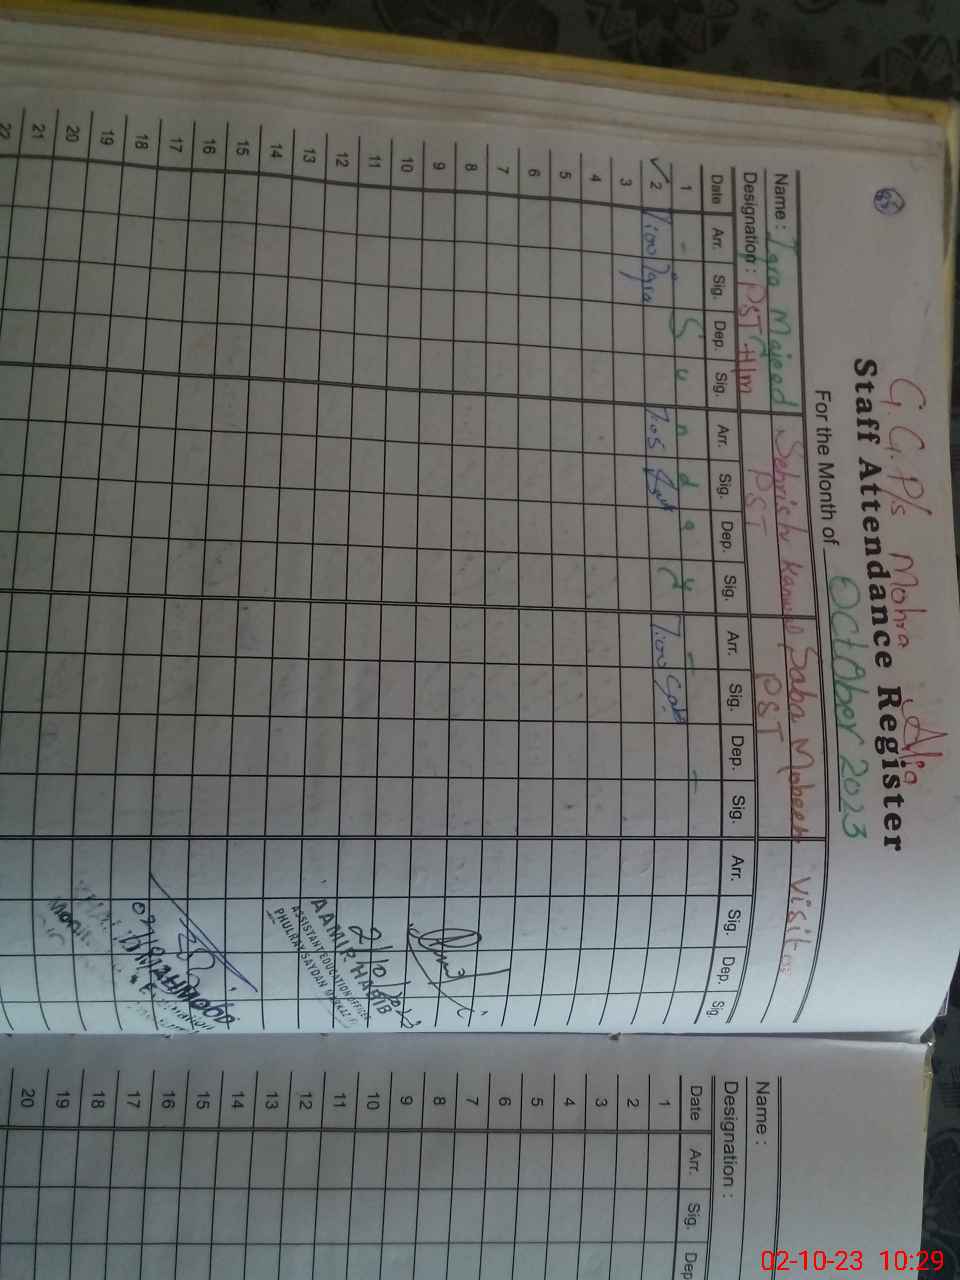 G. G. P/s Mohra Alia
Staff Attendance Register
For the Month of October 2023
Name : Iqra Majeed Sehrish Kanwal Saba Mobeen Visitor
Designation : PST H/m PST PST
Date Arr. Sig. Dep. Sig. Arr. Sig. Dep. Sig. Arr. Sig. Dep. Sig. Arr. Sig. Dep. Sig.
1 - S u n d a y -
2 7:00 Iqra 7:05 7:00
3
4
5
6
7
8
9
10
11
12
13
14
15
16
17
18
19
20
21
22
2/10/2023
AAMIR HABIB
ASSISTANT EDUCATION OFFICER
PHULRAY SAYDAN
Name :
Designation :
Date Arr. Sig. Dep
1
2
3
4
5
6
7
8
9
10
11
12
13
14
15
16
17
18
19
20
02-10-23 10:29